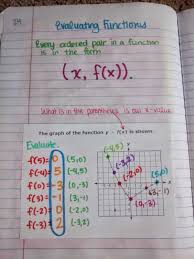 Evaluating Functions
Every ordered pair in a function
is in the form
(x, f(x)).
What is in the parenthesis is our x-value
The graph of the function y = f(x) is shown.
Evaluate.
f(5) = 0 (5,0)
f(-4) = 5 (-4,5)
f(0) = -3 (0,-3)
f(3) = -1 (3,-1)
f(-2) = 0 (-2,0)
f(-3) = 2 (-3,2)
(-4,5)
(-3,2)
(5,0)
(3,-1)
(0,-3)